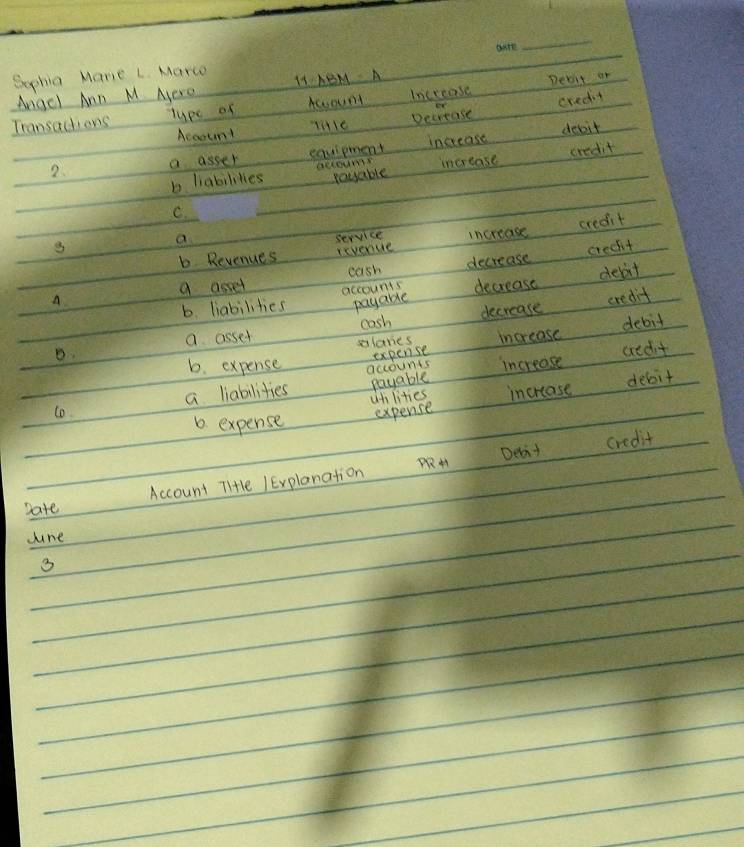 DATE
Sophia Marie L. Marco 11-ABM-A
Angel Ann M. Ayero
Transactions Type of Account Account Title Increase or Decrease Debit or credit
2. a. asset equipment increase debit
b. liabilities accounts payable increase credit
c.
3 a.
b. Revenues service revenue increase credit
4. a. asset cash decrease credit
b. liabilities accounts payable decrease debit
5. a. asset cash decrease credit
b. expense salaries expense increase debit
6. a. liabilities accounts payable increase credit
b. expense utilities expense increase debit
Date Account Title / Explanation PR# Debit Credit
June
3